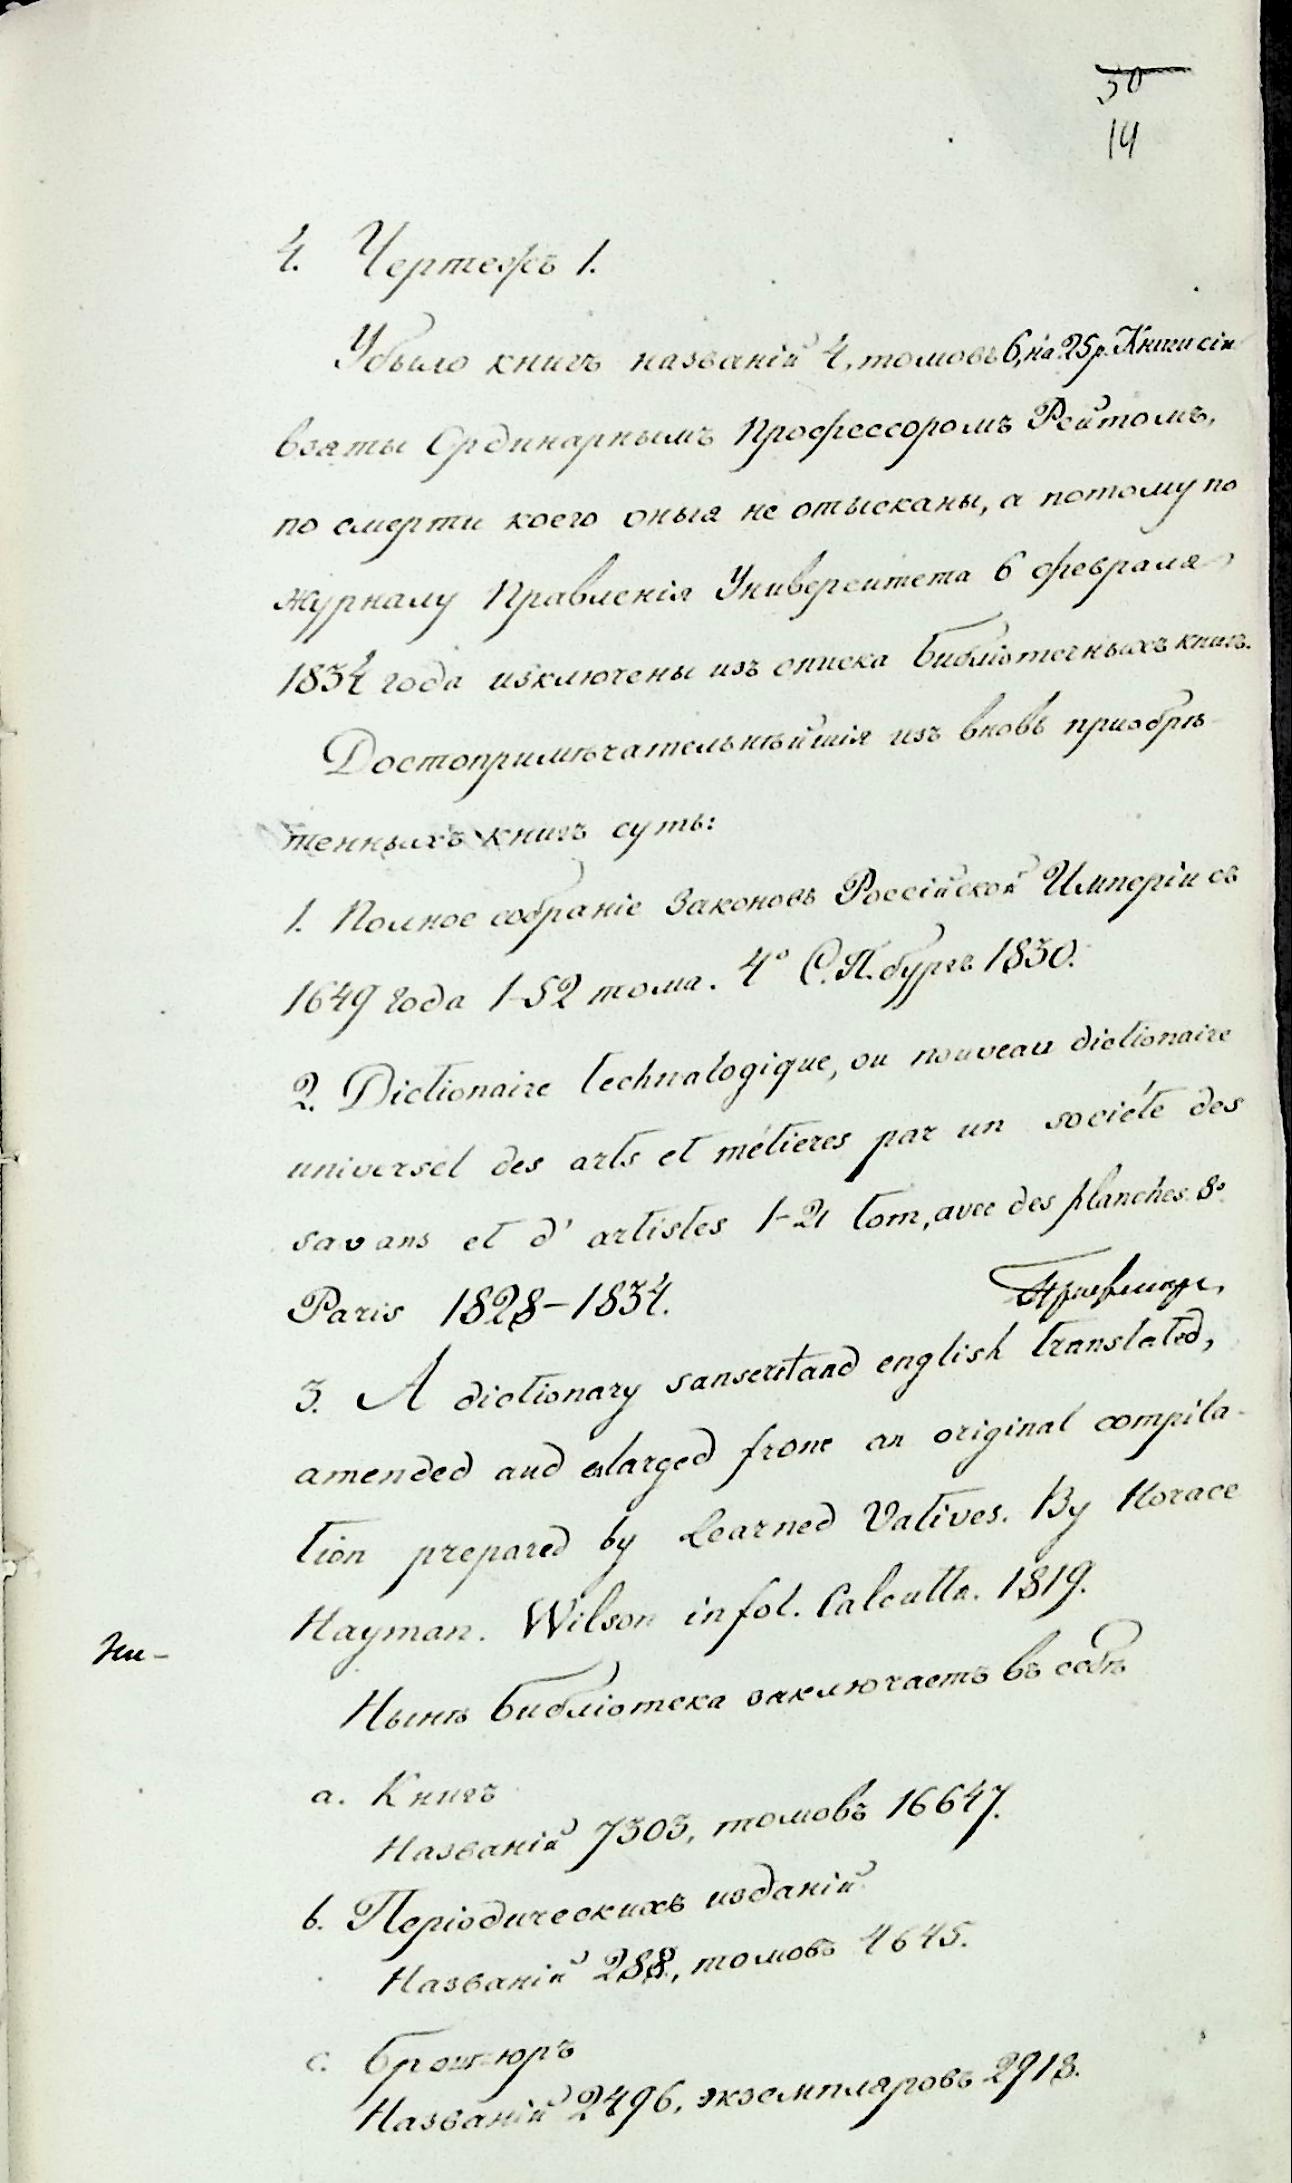 30
14
4. Чертежъ 1.
Убыло книгъ названій 4, томовъ 6, на 25 р. Книги сіи
взяты Ординарнымъ Профессоромъ Рейтомъ,
по смерти коего оныя не отысканы, а потому по
журналу Правленія Университета 6 февраля
1834 года изключены изъ списка библіотечныхъ книгъ.
Достопримѣчательнѣйшія изъ вновь приобрѣ-
тенныхъ книгъ суть:
1. Полное собраніе Законовъ Россійской Имперіи съ
1649 года 1-52 тома. 4° С.П.бургъ 1830.
2. Dictionaire technalogique, ou nouveau dictionaire
universel des arts et métieres par un société des
savans et d' artistes 1-21 tom, avec des planches. 8°
Paris 1828-1834.
3. A dictionary sanscritand english translated,
amended and enlarged frome an original compila-
tion prepared by Learned Vatives. By Horace
Hayman. Wilson in fol. Calcutta. 1819.
Ни-
Нынѣ библіотека заключаетъ въ себѣ
a. Книгъ
Названій 7303, томовъ 16647.
b. Періодическихъ изданій
Названій 288, томовъ 4645.
c. брошюръ
Названій 2496, экземпляровъ 2918.